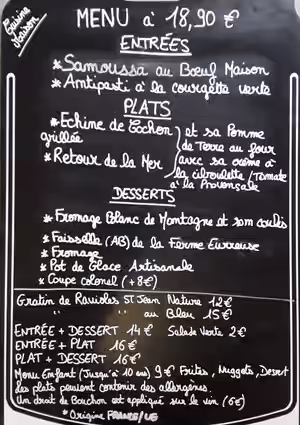 Cuisine Maison
MENU à 18,90 €
ENTRÉES
* Samoussa au Bœuf Maison
* Antipasti à la courgette verte
PLATS
* Echine de Cochon grillée
* Retour de la Mer
et sa Pomme
de Terre au four
avec sa crème à
la ciboulette / Tomate
à la Provençale
DESSERTS
* Fromage Blanc de Montagne et son coulis
* Faisselle (AB) de la Ferme
* Fromage
* Pot de Glace Artisanale
* Coupe colonel (+8€)
Gratin de Ravioles ST Jean Nature 12€
" " au Bleu 15€
ENTRÉE + DESSERT 14€ Salade Verte 2€
ENTRÉE + PLAT 16€
PLAT + DESSERT 16€
Menu Enfant (Jusqu'à 10 ans) 9€ Frites, Nuggets, Dessert
Les plats peuvent contenir des allergènes.
Un droit de Bouchon est appliqué sur le vin (6€)
* Origine FRANCE/UE